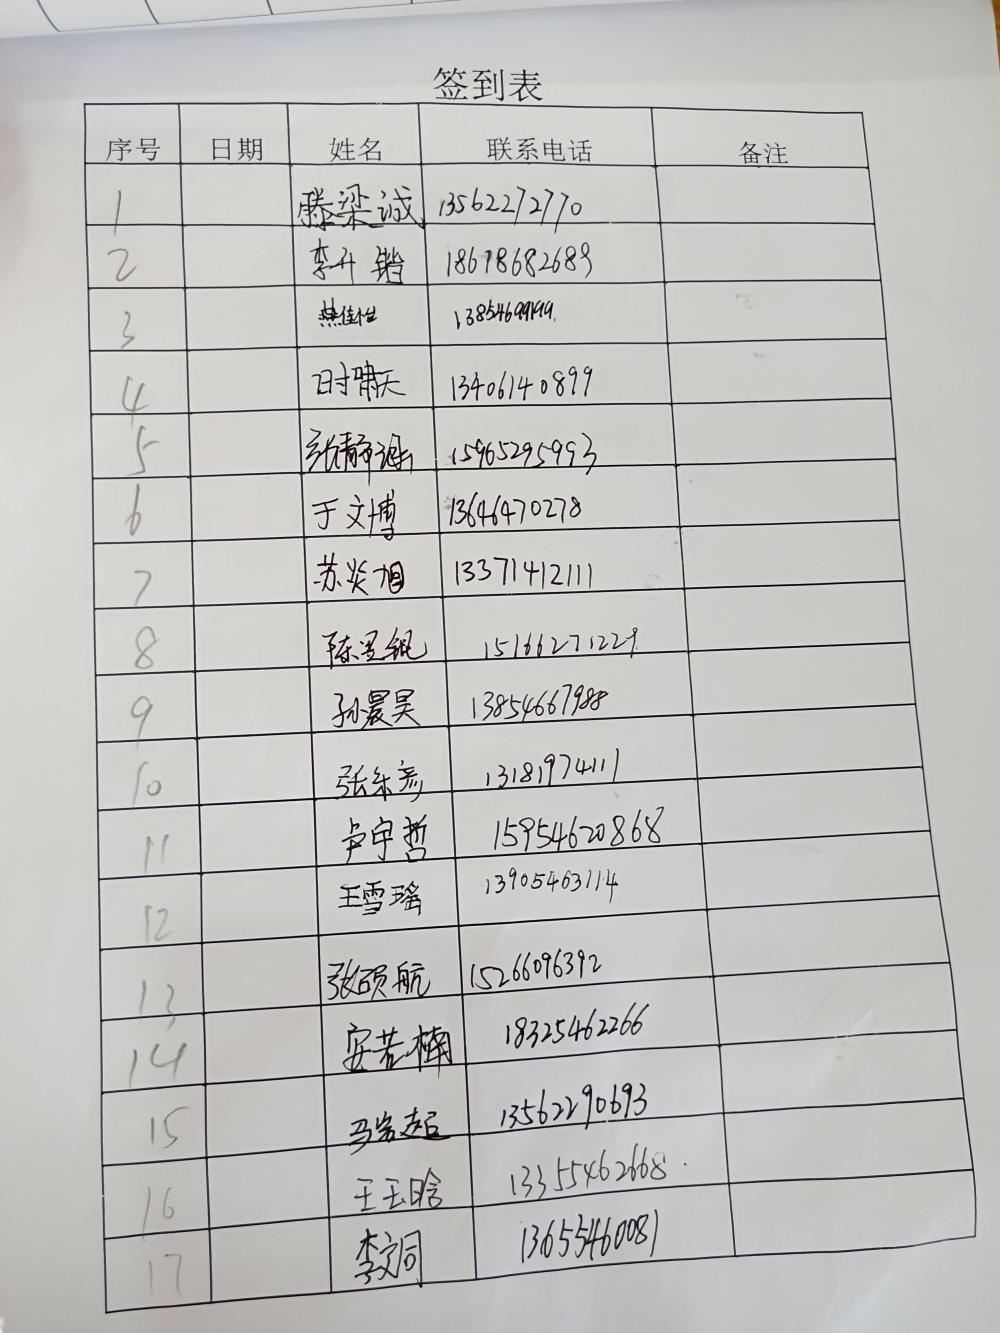 签到表
序号 日期 姓名 联系电话 备注
1 滕梁诚 13562272770
2 李升锴 18678682689
3 13854699199
4 时啸天 13406140899
5 张静涵 15965295993
6 于文博 13646470278
7 苏炎旭 13371412111
8 陈昱锟 15166271229
9 孙晨昊 13854667988
10 张乐彦 13181974111
11 卢宇哲 15954620868
12 王雪瑶 13905463114
13 张硕航 15266096392
14 安若楠 18325462266
15 马岩超 13562290693
16 王玉晗 13355462668
17 李文同 13655460081